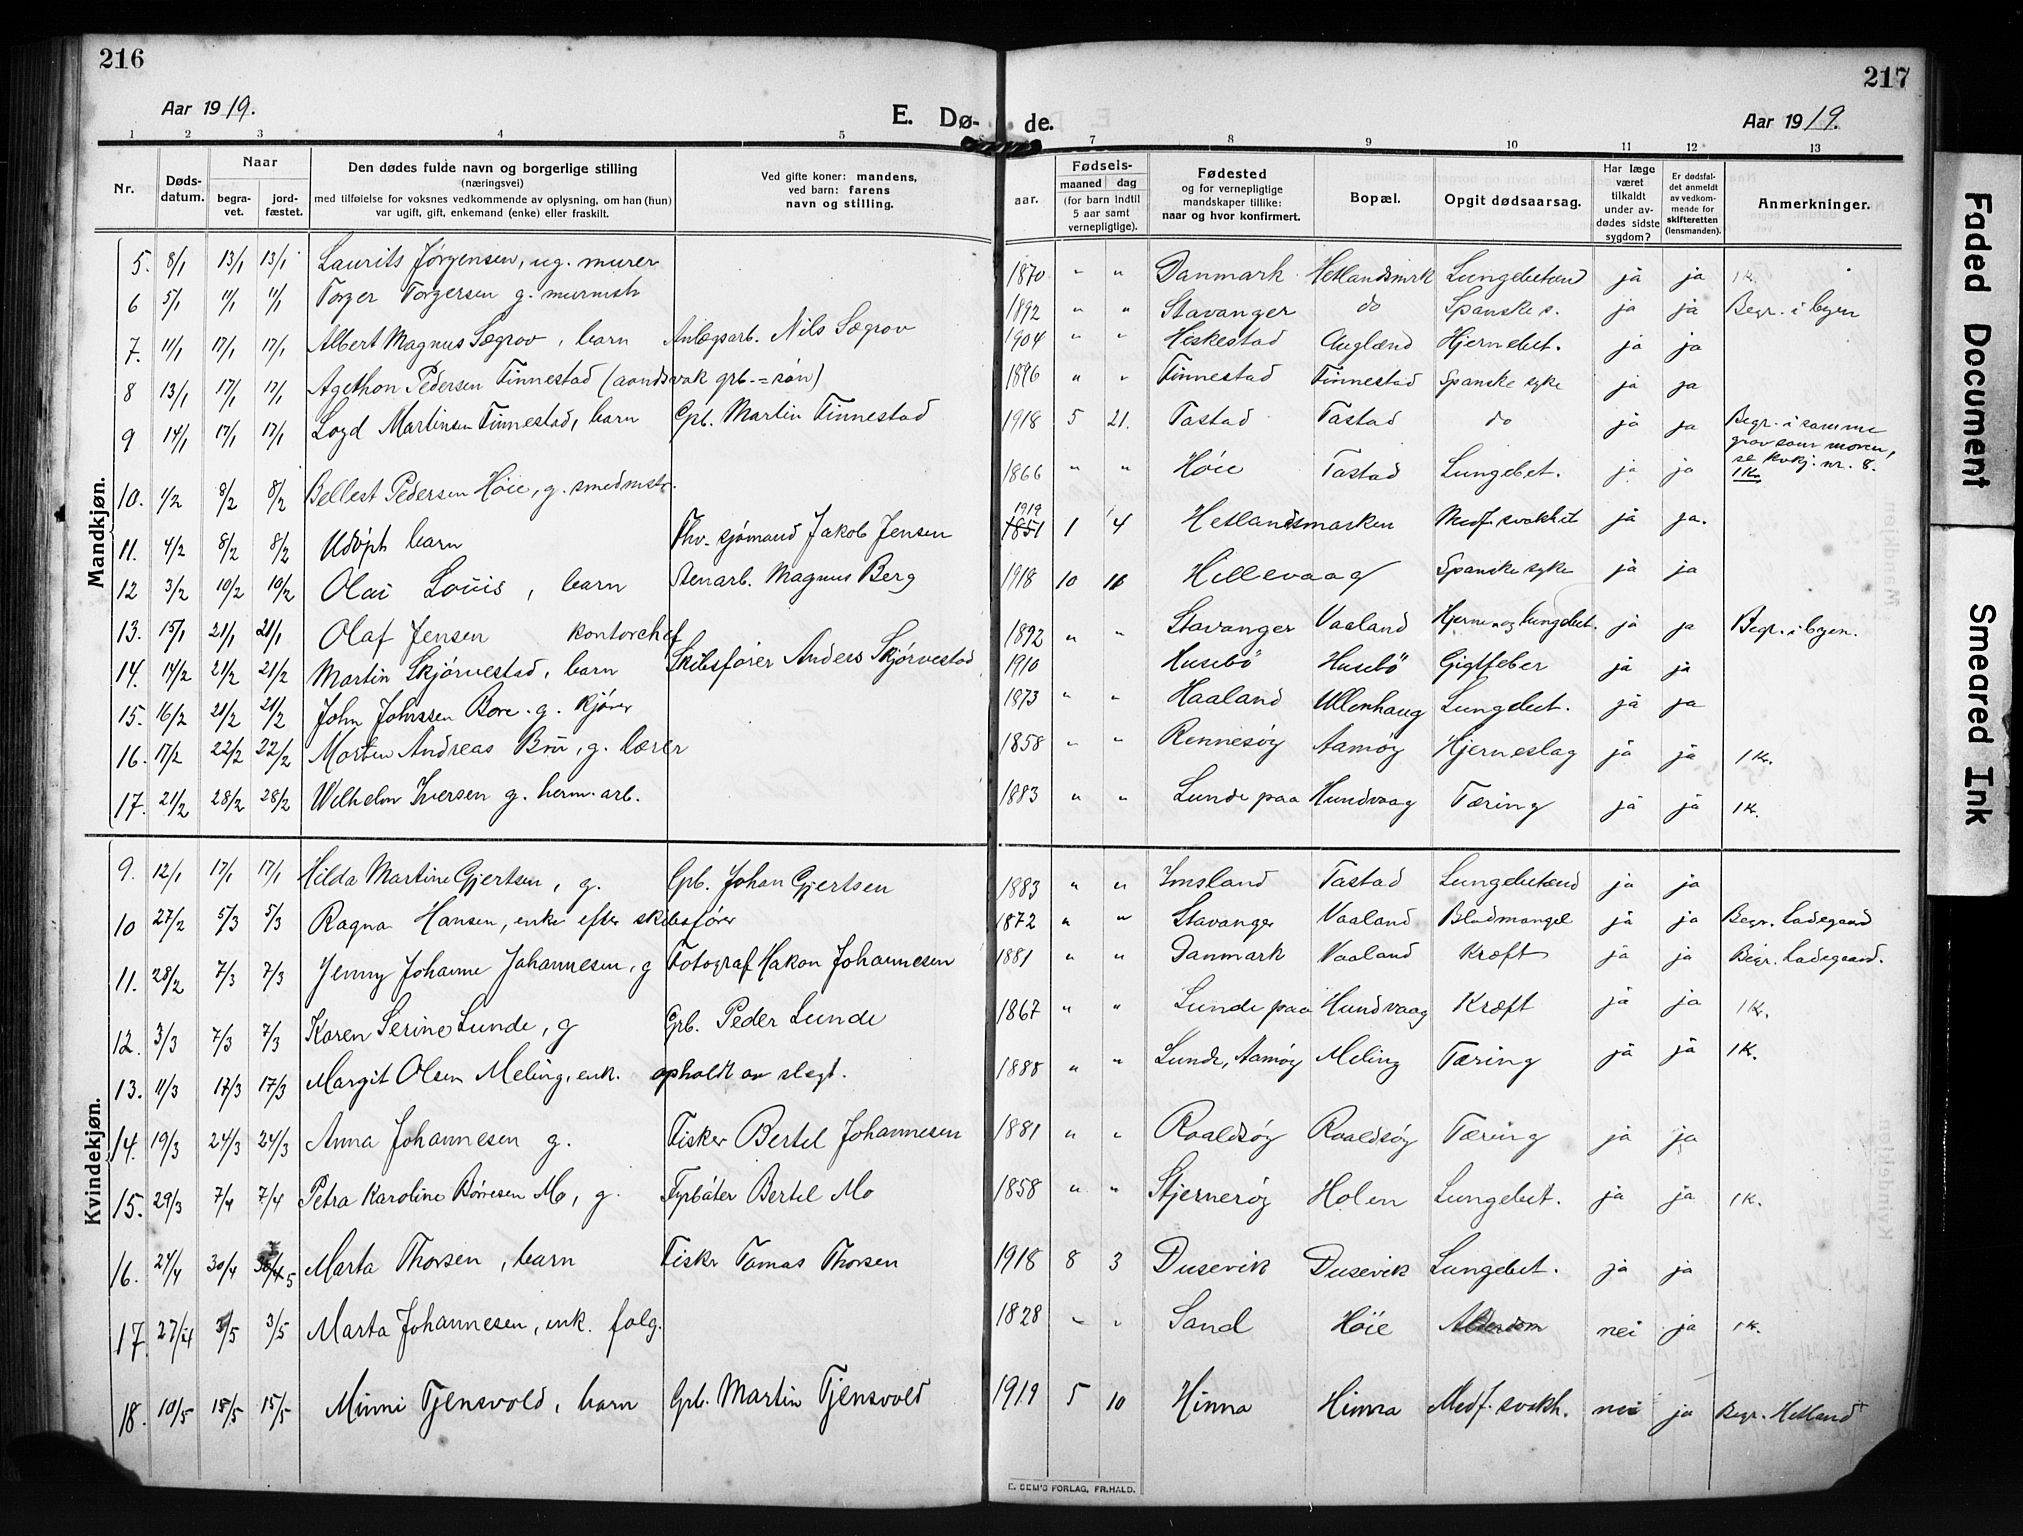 216
217
Aar 1919.
E. Dø-
de.
Aar 1919.
1 2 3 4 5 7 8 9 10 11 12 13
Nr.
Døds-
datum.
Naar
begra-
vet.
jord-
fæstet.
Den dødes fulde navn og borgerlige stilling
(næringsvei)
med tilføielse for voksnes vedkommende av oplysning, om han (hun)
var ugift, gift, enkemand (enke) eller fraskilt.
Ved gifte koner: mandens,
ved barn: farens
navn og stilling.
Fødsels-
aar.
maaned dag
(for barn indtil
5 aar samt
vernepligtige).
Fødested
og for vernepligtige
mandskaper tillike:
naar og hvor konfirmert.
Bopæl.
Opgit dødsaarsag.
Har læge
været
tilkaldt
under av-
dødes sidste
sygdom?
Er dødsfal-
det anmeldt
av vedkom-
mende for
skifteretten
(lensmanden).
Anmerkninger.
Mandkjøn.
5. 8/1 13/1 13/1 Laurits Jørgensen, ug. murer 1870 " " Danmark Hetlandsmrk Lungebetænd ja ja 1 K.
6 5/1 11/1 11/1 Torger Torgersen g. murmstr 1892 " " Stavanger do Spanske s. ja ja Begr. i byen
7. 11/1 17/1 17/1 Albert Magnus Sægrov, barn Anlægsarb. Nils Sægrov 1904 " " Heskestad Auglænd Hjernebet. ja ja
8 13/1 17/1 17/1 Agethon Pedersen Finnestad (aandsvak grb.=søn) 1896 " " Finnestad Finnestad Spanske syke ja ja
9 14/1 17/1 17/1 Loyd Martinsen Finnestad, barn Gpb. Martin Finnestad 1918 5 21. Tastad Tastad do ja ja Begr. i samme
grav som moren,
se kvkj. nr. 8.
1 Kr.
10. 1/2 8/2 8/2 Bellest Pedersen Høie, g. smedmstr. 1866 " " Høie Tastad Lungebet. ja ja
11. 4/2 8/2 8/2 Udøpt barn Fhv. sjømand Jakob Jensen 1919 1851 1 4 Hetlandsmarken Medf. svakhet ja ja.
12 3/2 10/2 10/2 Olai Louis, barn Stenarb. Magnus Berg 1918 10 16 Hillevaag Spanske syke ja ja
13. 15/1 21/1 21/1 Olaf Jensen kontorchef 1892 " " Stavanger Vaaland Hjerne og Lungebet. ja ja Begr. i byen.
14. 14/2 21/2 21/2 Martin Skjørvestad, barn Skibsfører Anders Skjørvestad 1910 Husebö Husebö Gigtfeber ja ja
15. 16/2 21/2 21/2 John Johnssen Bore. g. kjører 1873 " " Haaland Ullenhaug Lungebet. ja ja
16. 17/2 22/2 22/2 Morten Andreas Brü, g. lærer 1858 " " Rennesøy Aamøy Hjerneslag ja ja 1 Kr.
17. 21/2 28/2 28/2 Wilhelm Iversen g. herm. arb. 1883 " " Lunde paa Hundvaag Tæring ja ja 1 Kr.
Kvindekjøn.
9. 12/1 17/1 17/1 Hilda Martine Gjertsen, g. Gpb. Johan Gjertsen 1883 " " Imsland Tastad Lungebetænd ja ja
10 27/2 5/3 5/3 Ragna Hansen, enke efter skibsfører 1872 " " Stavanger Vaaland Blodmangel ja ja Begr. Ladegaard
11. 28/2 7/3 7/3 Jenny Johanne Johannesen, g Fotograf Hakon Johannesen 1881 " " Danmark Vaaland Kræft ja ja Begr. Ladegaard.
12. 3/3 7/3 7/3 Karen Serine Lunde, g Grb. Peder Lunde 1867 " " Lunde paa Hundvaag Kræft ja ja 1 Kr.
13. 11/3 17/3 17/3 Margit Olsen Meling, enk. opholdt av slegt. 1888 " " Lunde, Aamøy Meling Tæring ja ja 1 K.
14. 19/3 24/3 24/3 Anna Johannesen g. Fisker Bertel Johannesen 1881 " " Roaldsøy Roaldsøy Tæring ja ja
15. 29/3 7/4 7/4 Petra Karoline Børresen Mo, g. Fyrbøter Bertel Mo 1858 " " Stjernerøy Holen Lungebet. ja ja 1 K.
16. 24/4 30/4 5 Marta Thorsen, barn Fisker Tomas Thorsen 1918 8 3 Dusevik Dusevik Lungebet. ja ja
17. 27/4 3/5 3/5 Marta Johannesen, enk. folg. 1828 " " Sand Höie Alderdom nei ja 1 K.
18. 10/5 15/5 15/5 Minni Tjensvold, barn Grb. Martin Tjensvold 1919 5 10 Hinna Hinna Medf. svakh. nei ja Begr. Hetland
E. SEM'S FORLAG, FR.HALD.
Faded Document
Smeared Ink